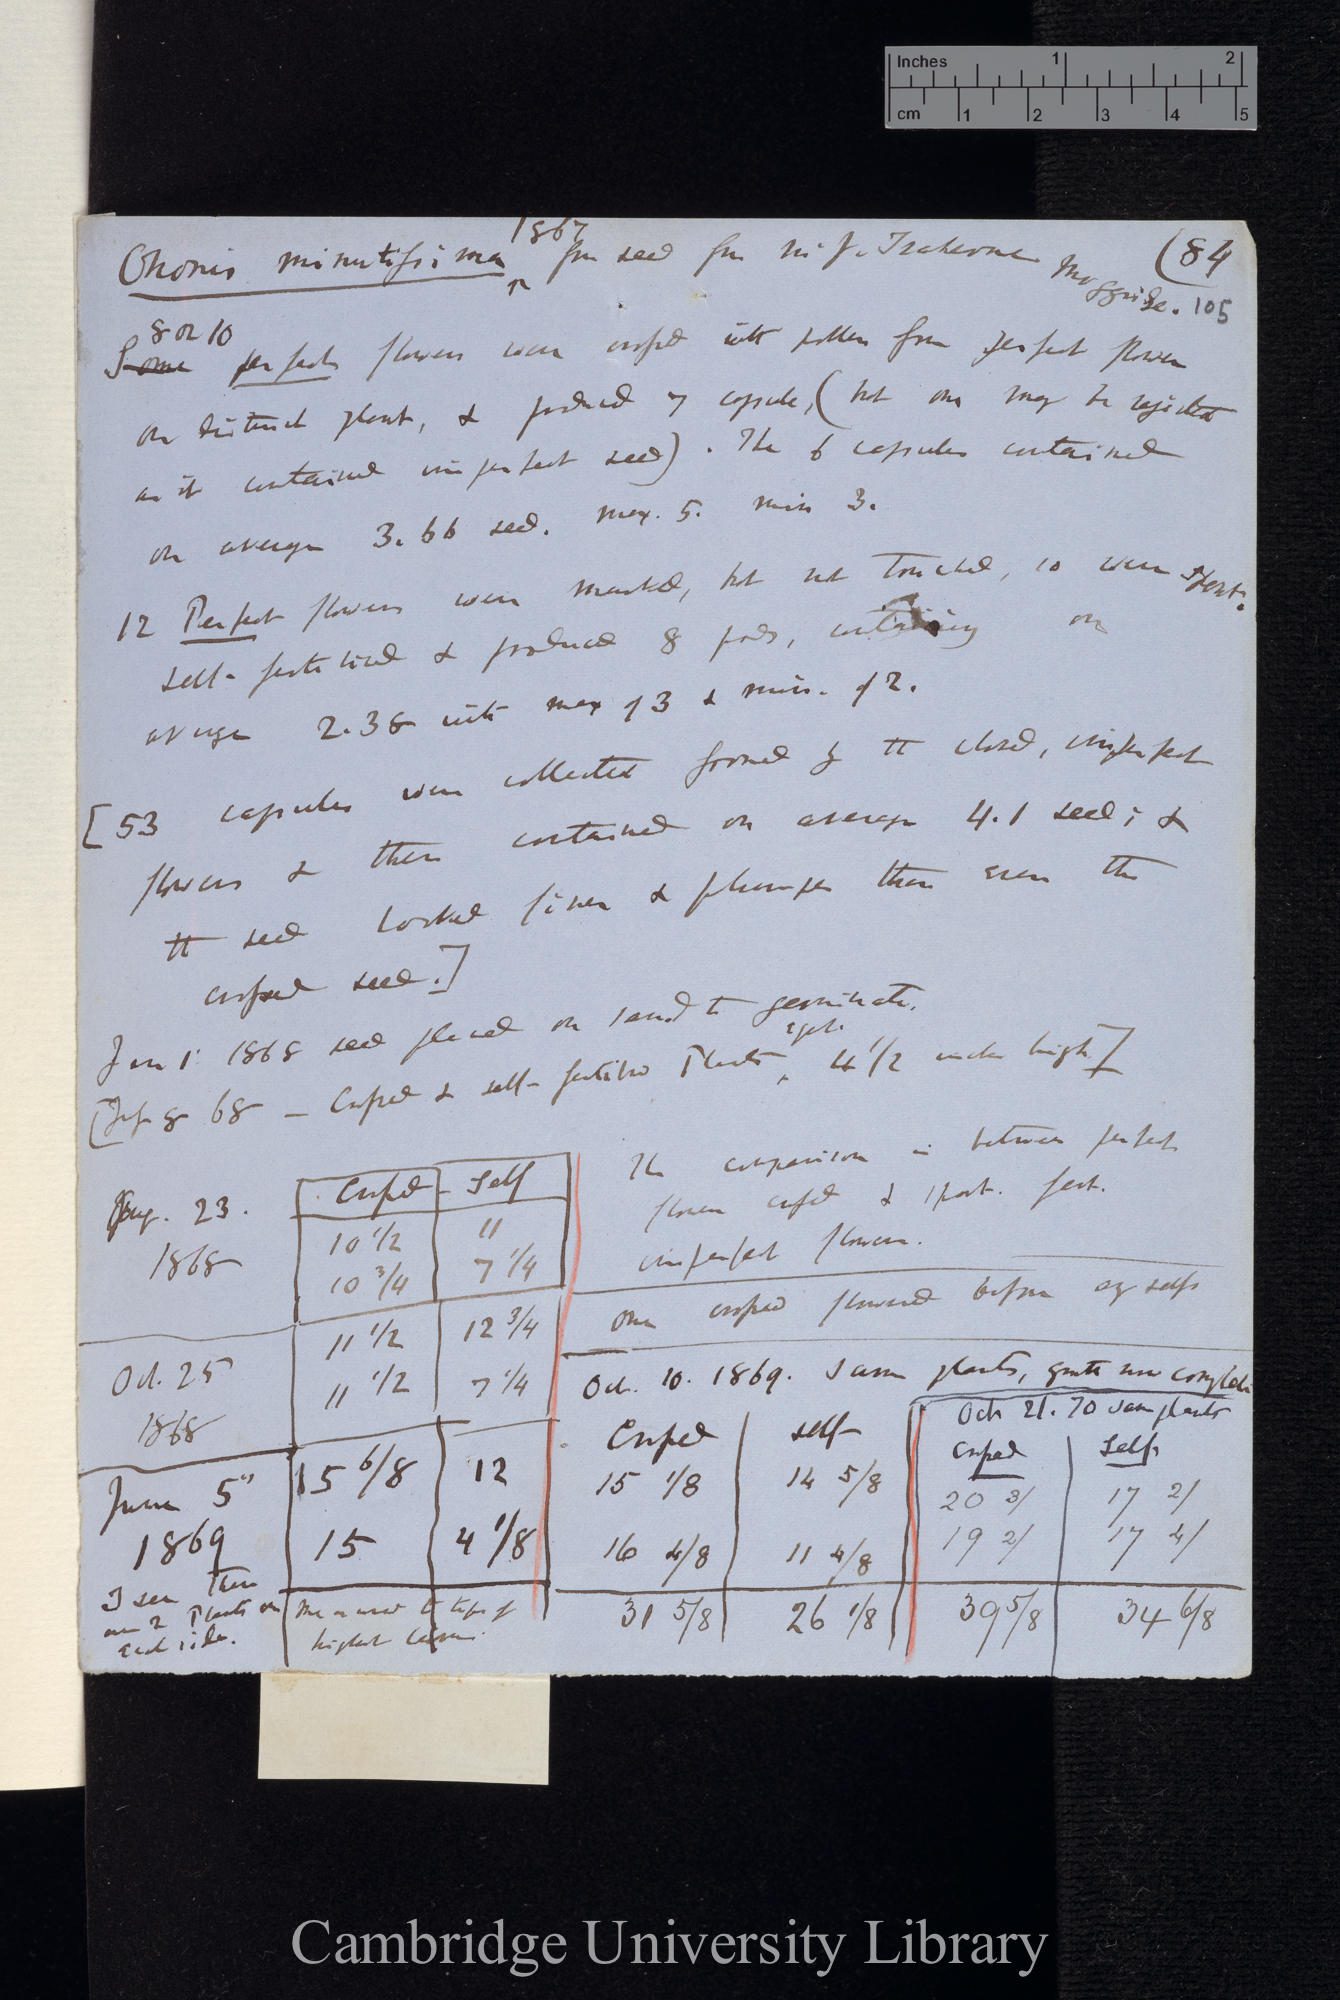 Inches 1 2
cm 1 2 3 4 5
(84
105
Ononis minutissima 1867 from seed from Mr J. Traherne Moggridge.
8 or 10
Some perfect flowers were crossed with pollen from perfect flower
on distinct plant, & produced 7 capsules, (but one may be rejected
as it contained imperfect seed). The 6 capsules contained
on average 3.66 seed. max. 5. min 3.
12 Perfect flowers were marked, but not touched, so were spont.
self-fertilised & produced 8 pods, containing on
average 2.38 with max of 3 & min. of 2.
[53 capsules were collected formed by the closed, imperfect
flowers & these contained on average 4.1 seed; &
the seed looked finer & plumper than even the
crossed seed.]
Jan 1. 1868 seed placed on sand to germinate.
8 68 — Crossed & self-fertilised Plants, 4 1/2 inches high]
Aug. 23.
1868
Crossed Self
10 1/2 11
10 3/4 7 1/4
The comparison is between perfect
flowers crossed & spont. fert.
imperfect flowers.
one crossed flowered before any selfs
Oct. 25
1868
11 1/2 12 3/4
11 1/2 7 1/4
June 5"
1869
15 6/8 12
15 4 1/8
I see there
are 2 Plants on
each side.
measured to tips of
highest leaves.
Oct. 10. 1869. Same plants,
Crossed self
15 1/8 14 5/8
16 4/8 11 4/8
31 5/8 26 1/8
Oct 21. 70 same plants
Crossed Selfs
20 3/ 17 2/
19 2/ 17 4/
39 5/8 34 6/8
Cambridge University Library